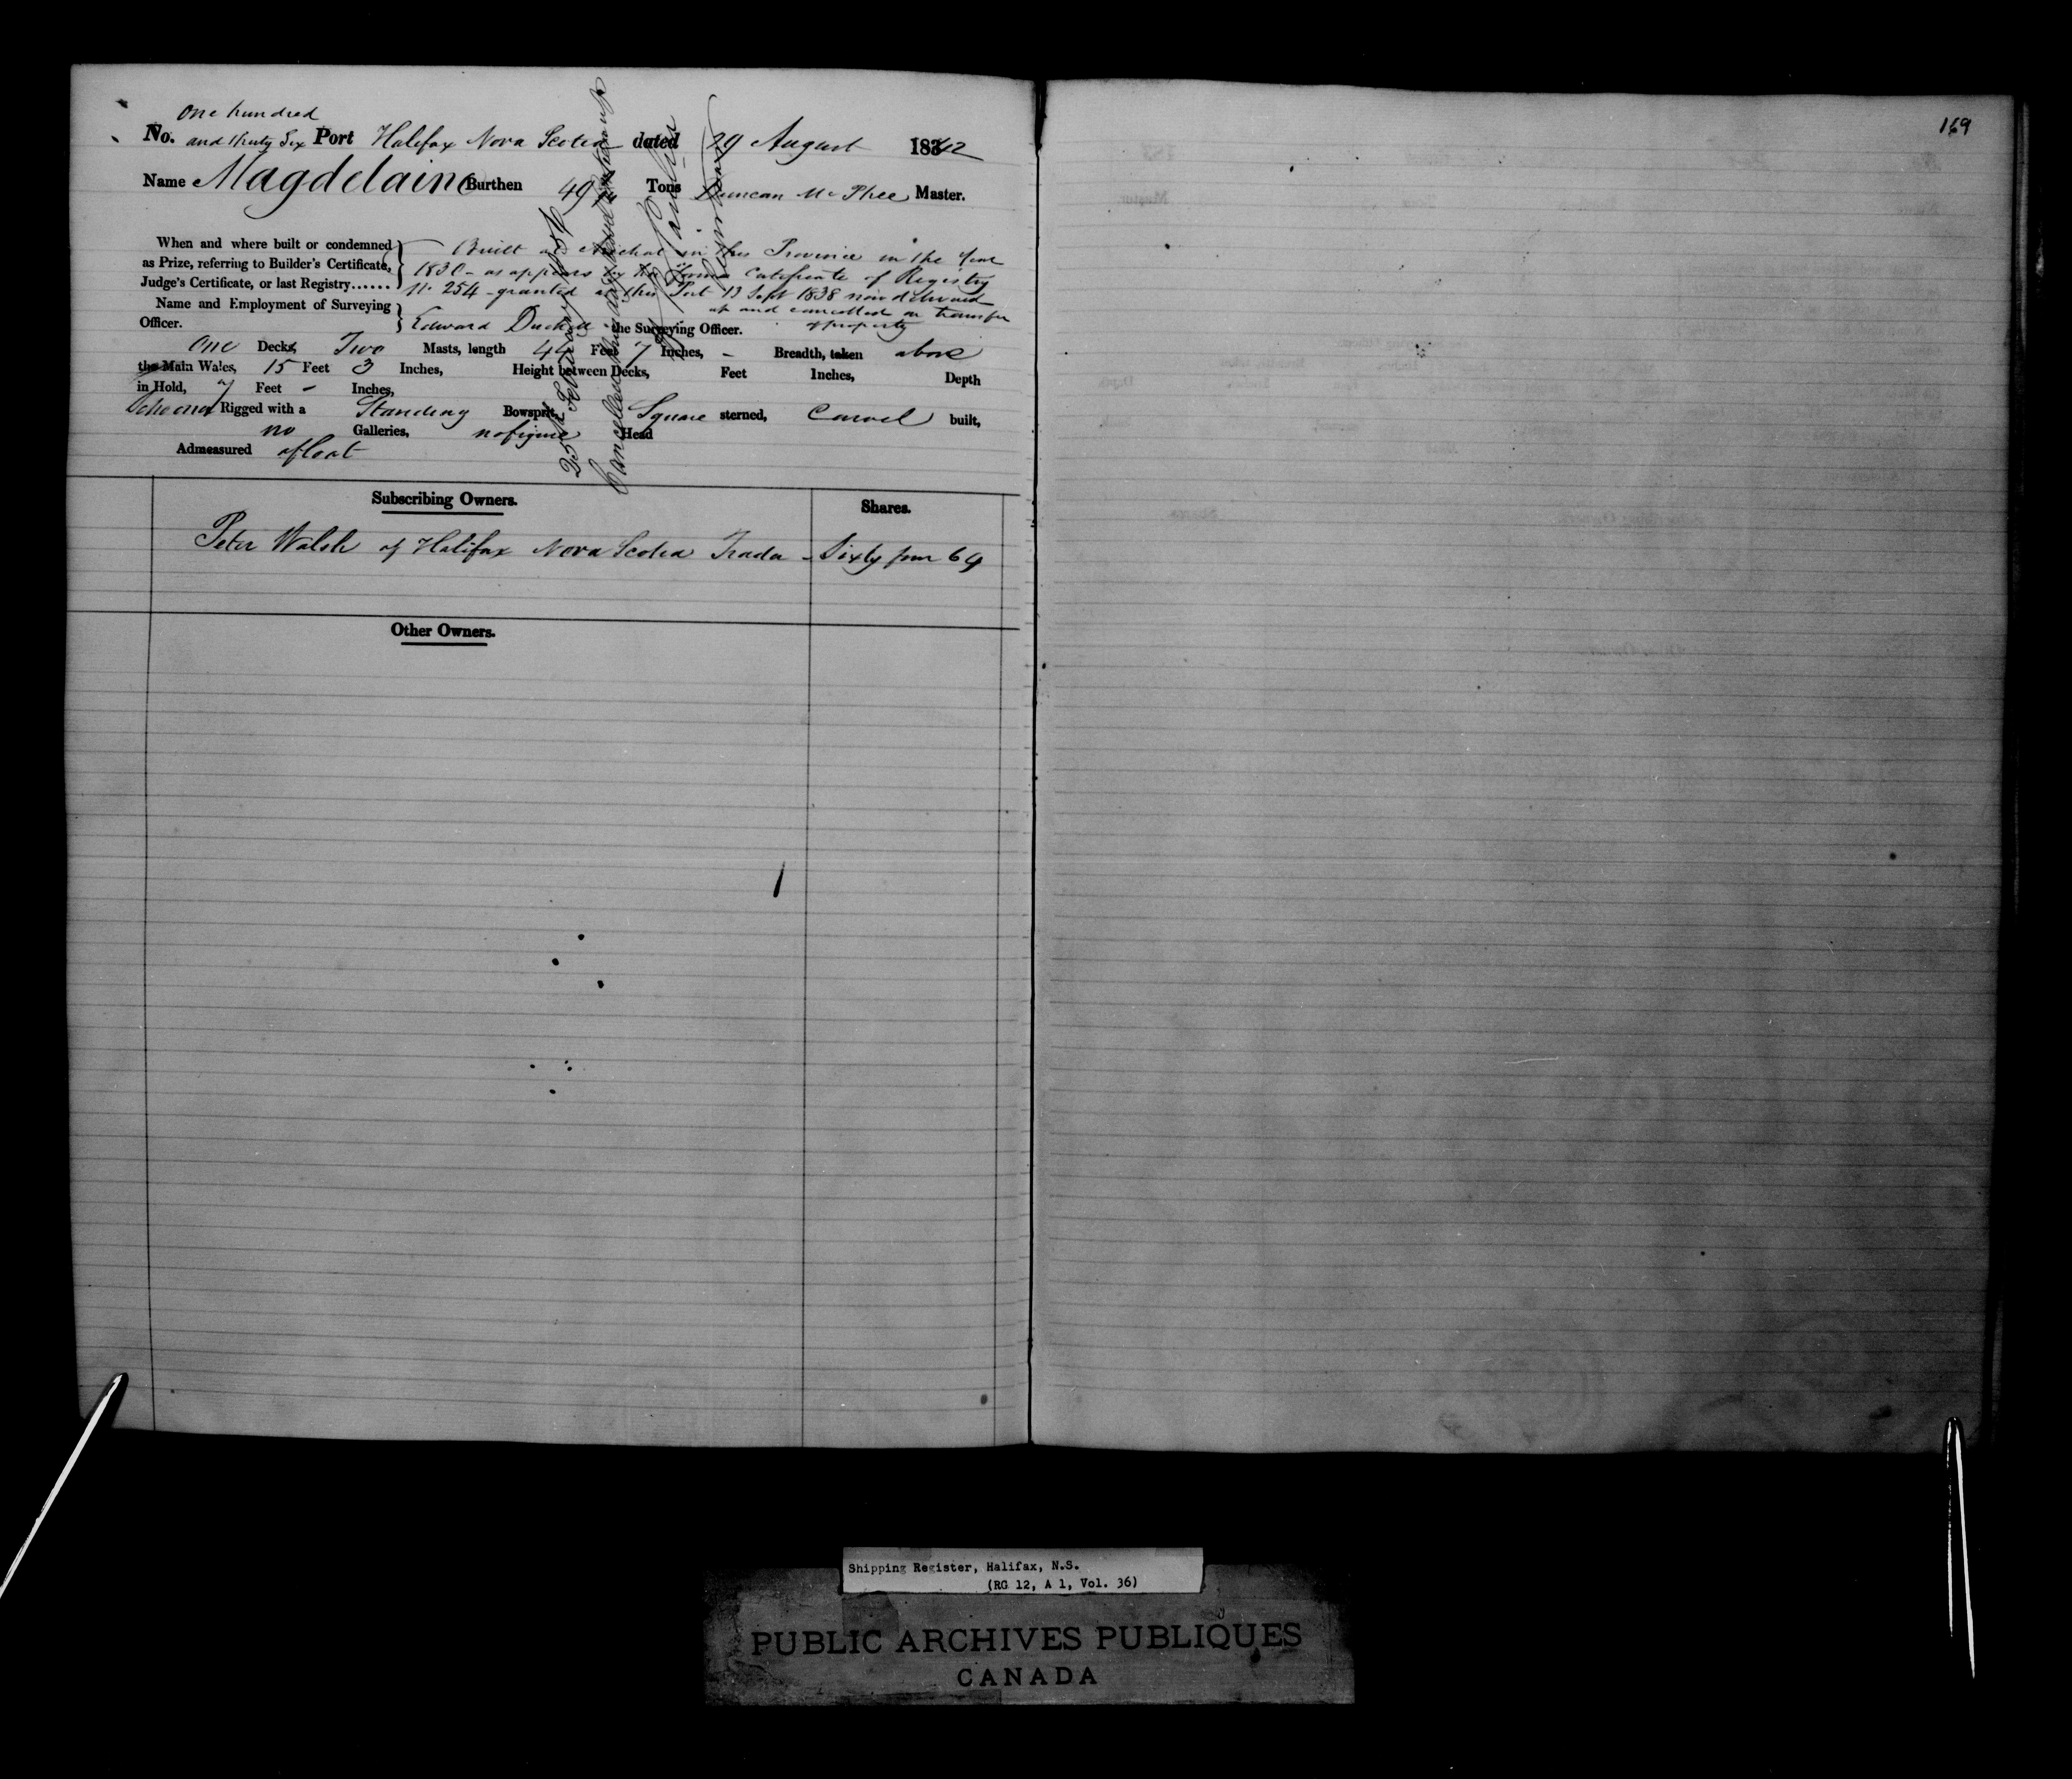 One hundred
No. and thirty Six Port Halifax Nova Scotia dated 29 August 1842
Name Magdelaine Burthen 49 Tons Duncan McPhee Master.
When and where built or condemned as Prize, referring to Builder's Certificate, Judge's Certificate, or last Registry......
Built at Arichat in this Province in the Year
1830 - as appears by the former Certificate of Registry
No. 254 - granted at this Port 13 Sept 1838 now delivered
up and cancelled on transfer
of property
Name and Employment of Surveying Officer.
Edward Duckett the Surveying Officer.
One Decks, Two Masts, length 44 Feet 7 Inches, - Breadth, taken above
the Main Wales, 15 Feet 3 Inches, Height between Decks, Feet Inches, Depth
in Hold, 7 Feet - Inches,
Schooner Rigged with a Standing Bowsprit, Square sterned, Carvel built,
no Galleries, no figure Head
Admeasured afloat
25th February 1854
Cancelled
Subscribing Owners.
Shares.
Peter Walsh of Halifax Nova Scotia Trader - Sixty four 64
Other Owners.
169
Shipping Register, Halifax, N.S.
(RG 12, A 1, Vol. 36)
PUBLIC ARCHIVES PUBLIQUES
CANADA